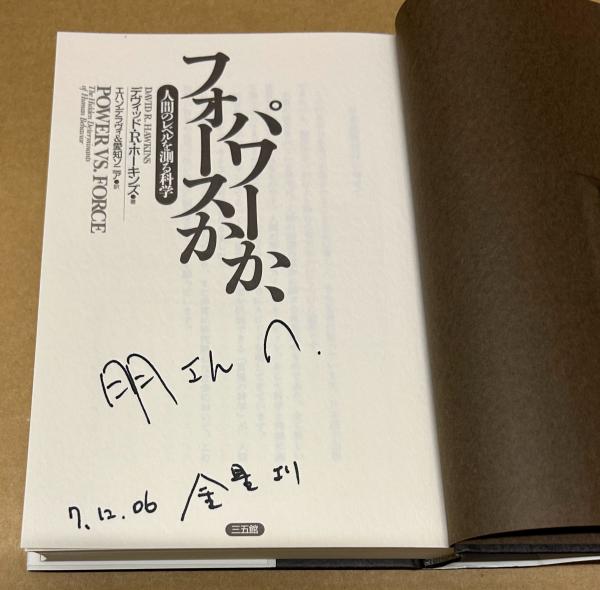 パワーか、
フォースか
人間のレベルを測る科学
DAVID R. HAWKINS
デヴィッド・R・ホーキンズ●著
エハン・デラヴィ&愛知ソニア●訳
POWER VS. FORCE
The Hidden Determinants
of Human Behavior
明さんへ.
7.12.06 金星
三五館